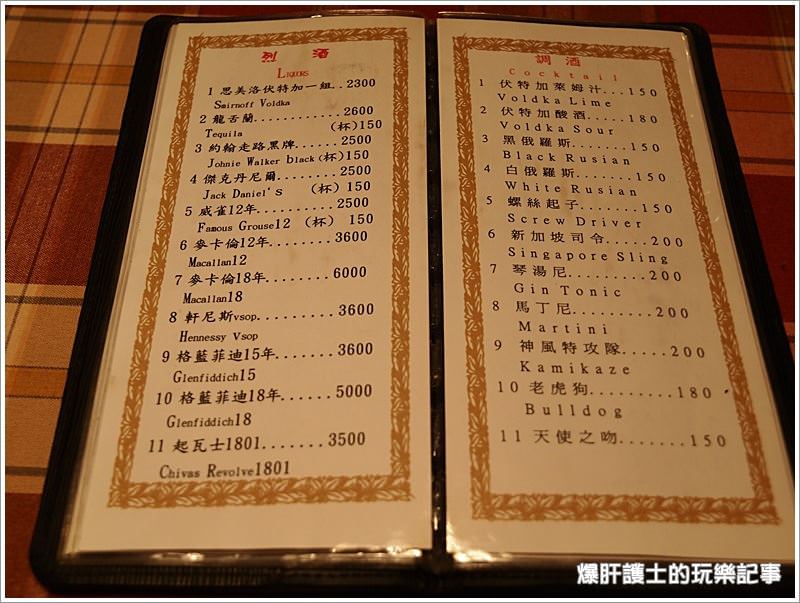 烈酒
Liquors
1 思美洛伏特加一組..2300
Smirnoff Voldka
2 龍舌蘭............2600
Tequila (杯)150
3 約翰走路黑牌......2500
Johnie Walker black(杯)150
4 傑克丹尼爾........2500
Jack Daniel's (杯) 150
5 威雀12年..........2500
Famous Grouse12 (杯) 150
6 麥卡倫12年........3600
Macallan12
7 麥卡倫18年........6000
Macallan18
8 軒尼斯vsop........3600
Hennessy Vsop
9 格藍菲迪15年.......3600
Glenfiddich15
10 格藍菲迪18年......5000
Glenfiddich18
11 起瓦士1801.......3500
Chivas Revolve1801
調酒
Cocktail
1 伏特加萊姆汁...150
Voldka Lime
2 伏特加酸酒....180
Voldka Sour
3 黑俄羅斯.......150
Black Rusian
4 白俄羅斯.......150
White Rusian
5 螺絲起子.......150
Screw Driver
6 新加坡司令.....200
Singapore Sling
7 琴湯尼.........200
Gin Tonic
8 馬丁尼.........200
Martini
9 神風特攻隊.....200
Kamikaze
10 老虎狗........180
Bulldog
11 天使之吻.......150
爆肝護士的玩樂記事